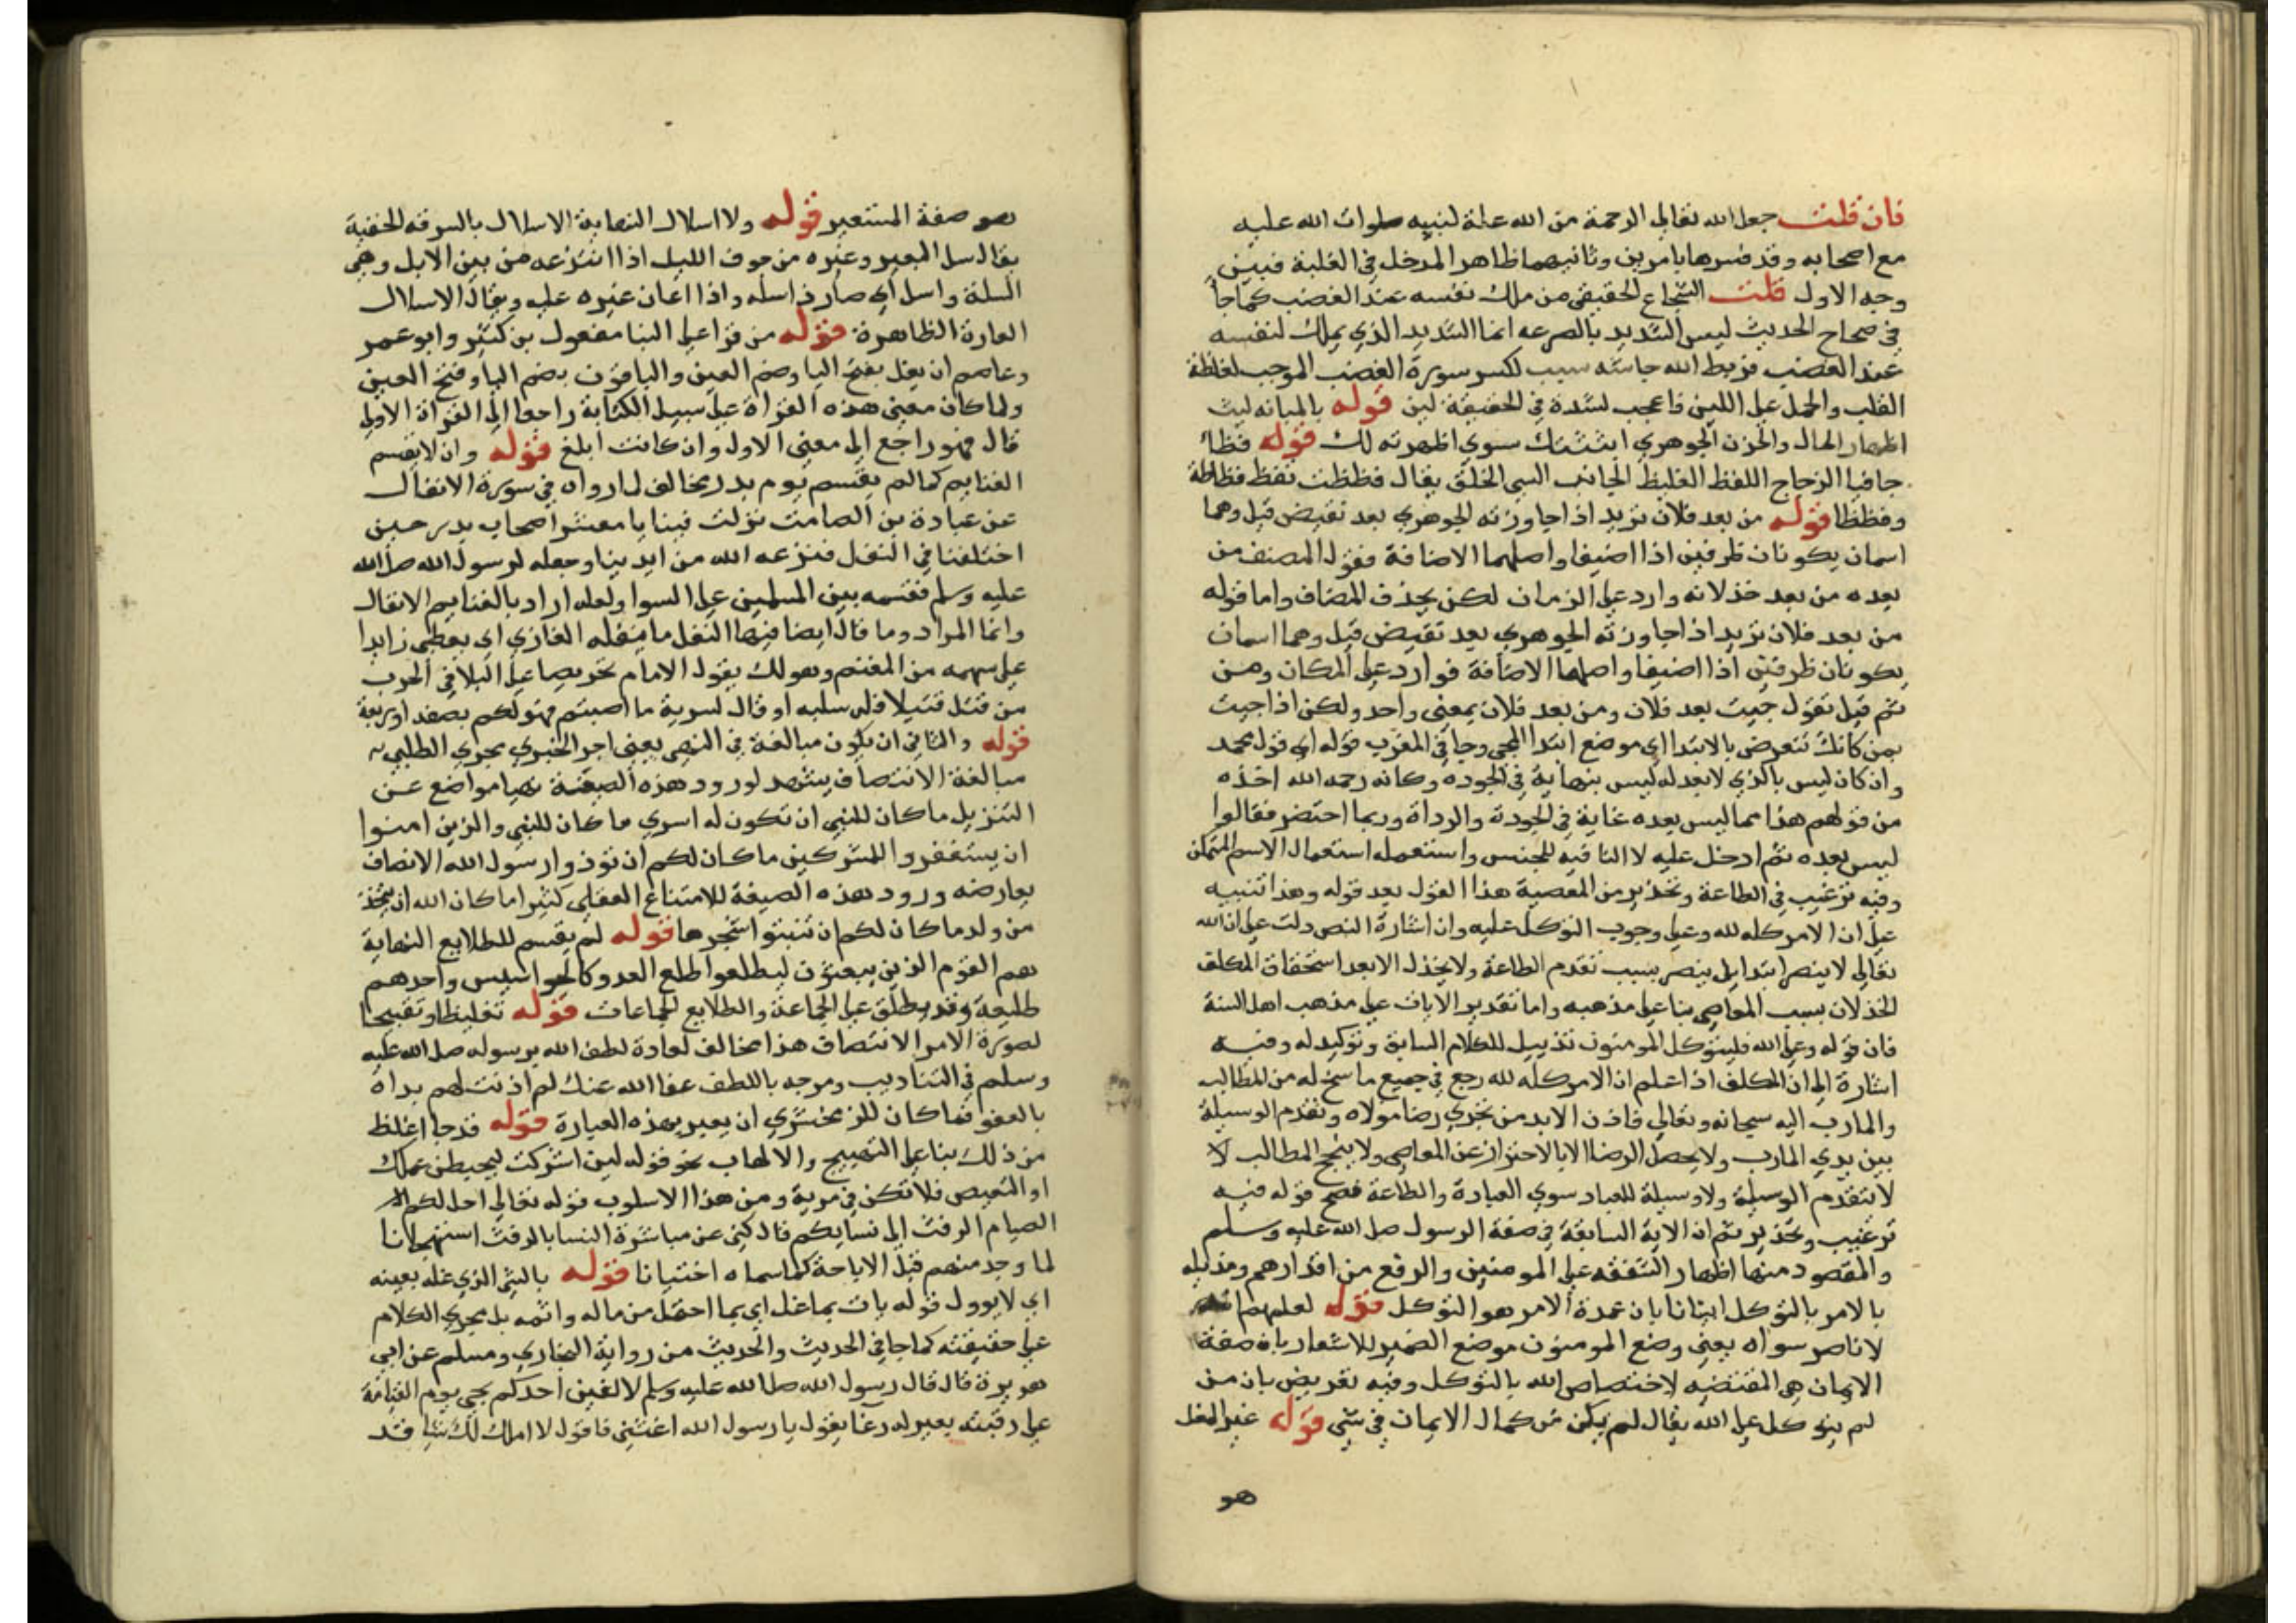 فان قلت جعل الله تعالي الرحمة من الله علة لنبيه صلوات الله عليه
مع اصحابه وقد فسرها بامرين وثانيهما ظاهر المدخل في الغلبة فبين
وجه الاول قلت الشجاع الحقيقي من ملك نفسه عند الغضب كما جا
في صحاح الحديث ليس الشديد بالصرعه انما الشديد الذي يملك لنفسه
عند الغضب فربط الله جاشه سبب لكسر سورة الغضب الموجب لغلظة
القلب والحمل علي اللين فاعجب لشدة في الحقيقة لين قوله بالمباثه ليث
اظهار الحال والحزن الجوهري ابثثتك سري اظهرته لك قوله فظا
جافيا الزجاج اللفظ الغليظ الجانب السي الخلق يقال فظظت تفظ فظاظة
وفظظا قوله من بعد فلان تريد اذا جاوزته الجوهري بعد نقيض قبل وهما
اسمان يكونان ظرفين اذا اضيفا واصلهما الاضافة فقول المصنف من
بعده من بعد خذلانه وارد علي الزمان لكن بحذف المضاف واما قوله
من بعد فلان تريد اذا جاوزته الجوهري بعد نقيض قبل وهما اسمان
يكونان ظرفين اذا اضيفا واصلهما الاضافة فوارد علي المكان وهن
ثم قيل تقول جيت بعد فلان ومن بعد فلان بمعني واحد ولكن اذا جيت
بمن كانك تتعرض بالابتدا اي موضع ابتدا المجي وجا في المغرب قوله اي قول محمد
وان كان ليس بالذي لا بعد له ليس بنهاية في الجوده وكانه رحمه الله اخذه
من قولهم هذا مما ليس بعده غاية في الجودة والرداة وربما اختصر فقالوا
ليس بعده ثم ادخل عليه لا النافيه للجنس واستعمله استعمال الاسم المتمكن
وفيه ترغيب في الطاعة وتحذير من المعصية هذا القول بعد قوله وهذا تنبيه
علي ان الامر كله لله وعلي وجوب التوكل عليه وان اشارة النص دلت علي ان الله
تعالي لا ينصر ابتدا بل ينصر بسبب تقدم الطاعة ولا يخذل الا بعد استحقاق المكلف
الخذلان بسبب المعاصي بنا علي مذهبه واما تقدير الايات علي مذهب اهل السنة
فان قوله وعلي الله فليتوكل المومنون تذييل للكلام السابق وتوكيد له وفيه
اشارة الي ان المكلف اذا علم ان الامر كله لله رجع في جميع ما سنح له من المطالب
والمارب اليه سبحانه وتعالي فاذن لابد من تحري رضا مولاه وتقدم الوسيلة
بين يدي المارب ولا يحصل الرضا الا بالاحتراز عن المعاصي ولا ينجح المطالب لا
لا بتقدم الوسيلة ولا وسيلة للعباد سوي العبادة والطاعة فصح قوله فيه
ترغيب وتحذير ثم ان الاية السابقة في صفة الرسول صل الله عليه وسلم
والمقصود منها اظهار الشفقه علي المومنين والرفع من اقدارهم ومذيله
بالامر بالتوكل ايذانا بان عمدة الامر هو التوكل قوله لعلمهم انه
لا ناصر سواه يعني وضع المومنون موضع الضمير للاشعار بان صفة
الايمان هي المقتضيه لاختصاص الله بالتوكل وفيه تعريض بان من
لم يتوكل علي الله يقال لم يكن من كمال الايمان في شي قوله غير المغل
هو
هو صفة المستعير قوله ولا اسلال النهاية الاسلال بالسرقه الخفية
يقال سل البعير وغيره من جوف الليل اذا انتزعه من بين الابل وهي
السلة واسل اي صار ذا سله واذا اعان غيره عليه ويقال الاسلال
الغارة الظاهرة قوله من قرا علي البنا مفعول بن كثير وابو عمر
وعاصم ان يغل بفتح اليا وضم الغين والباقون بضم اليا وفتح الغين
ولما كان معني هذه القراة علي سبيل الكناية راجعا الي القراة الاولي
قال فهو راجع الي معني الاول وان كانت ابلغ قوله وان لا يقسم
الغنايم كما لم يقسم يوم بدر مخالف لما رواه في سورة الانفال
عن عبادة بن الصامت نزلت فينا يا معشر اصحاب بدر حين
اختلفنا في النفل فنزعه الله من ايدينا وجعله لرسول الله صل الله
عليه وسلم فقسمه بين المسلمين علي السوا ولعله اراد بالغنايم الانفال
وانما المراد وما قال ايضا فيها النفل ما ينفله الغازي اي يعطي زايدا
علي سهمه من المغنم وهو لك يقول الامام تحريضا علي البلا في الحرب
من قتل قتيلا فله سلبه او قال لسرية ما اصبتم فهو لكم بصفه او ربعة
قوله والثاني ان يكون مبالغة في النهي يعني اجر الخبري مجري الطلبي
مبالغة الانتصاف يشهد لورود هذه الصيغة نهيا مواضع عن
التنزيل ما كان للنبي ان تكون له اسري ما كان للنبي والذين امنوا
ان يستغفروا للمشركين ما كان لكم ان توذوا رسول الله الانصاف
يعارضه ورود هذه الصيغة للامتناع العقلي كثيرا ما كان الله ان يتخذ
من ولد ما كان لكم ان تنبتوا شجرها قوله لم يقسم للطلايع النهاية
هم القوم الذين يبعثون ليطلعوا طلع العدو كالجواسيس واحدهم
طليعة وقد يطلق علي الجماعة والطلايع الجماعات قوله تغليظا وتقبيحا
لصورة الامر الانتصاف هذا مخالف لعادة لطف الله برسوله صل الله عليه
وسلم في التاديب ومزجه باللطف عفا الله عنك لم اذنت لهم بداه
بالعفو فما كان للزمخشري ان يعبر بهذه العبارة قوله قد جا اغلظ
من ذلك بنا علي التهييج والالهاب نحو قوله لين اشركت ليحبطن عملك
او التعيص فلا تكن في مرية ومن هذا الاسلوب قوله تعالي احل لكم
الصيام الرفث الي نسايكم قال كني عن مباشرة النسا بالرفث استهجانا
لما وجد منهم قبل الاباحة كما سماه اختيانا قوله بالشي الذي غله بعينه
اي لا يوول قوله بات بما غل اي بما احتمل من ماله واثمه بل يجري الكلام
علي حقيقته كما جا في الحديث والحديث من رواية البخاري ومسلم عن ابي
هريرة قال قال رسول الله صل الله عليه وسلم لا الفين احدكم يجي يوم القيامة
علي رقبته بعير له رغا يقول يا رسول الله اغثني فاقول لا املك لك شيا قد